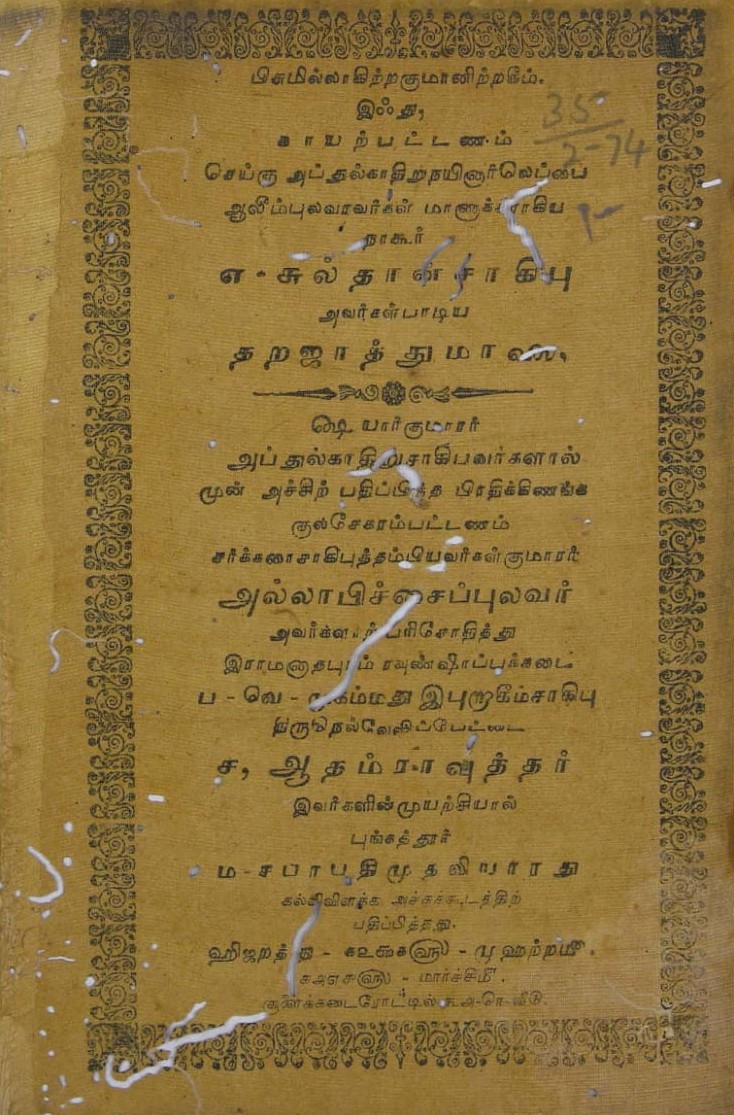 பிசுமில்லாகிற்றகுமானிற்றகீம்.
இஃது,
காயற்பட்டணம்
செய்கு அப்துல்காதிறுநயினார்லெப்பை
ஆலீம்புலவரவர்கள் மாணாக்கராகிய
நாகூர்
எ-சுல்தான்சாகிபு
அவர்கள்பாடிய
தறஜாத்துமாலை,
௸ யார்குமாரர்
அப்துல்காதிறுசாகிபவர்களால்
முன் அச்சிற் பதிப்பித்த பிரதிக்கிணங்க
குலசேகரம்பட்டணம்
சர்க்கரைசாகிபுத்தம்பியவர்கள்குமாரர்
அல்லாபிச்சைப்புலவர்
அவர்களாற் பரிசோதித்து
இராமனாதபுரம் ரவுண்ஷாப்புக்கடை
ப - வெ - முகம்மது இபுறாகீம்சாகிபு
திருநெல்வேலிப்பேட்டை
ச, ஆதம்ராவுத்தர்
இவர்களின்முயற்சியால்
புங்கத்தூர்
ம-சபாபதிமுதலியாரது
கல்விவிளக்க அச்சுக்கூடத்திற்
பதிப்பித்தது.
ஹிஜறத்து - - முஹற்றமீ.
- மார்ச்சிமீ.
35
2-74